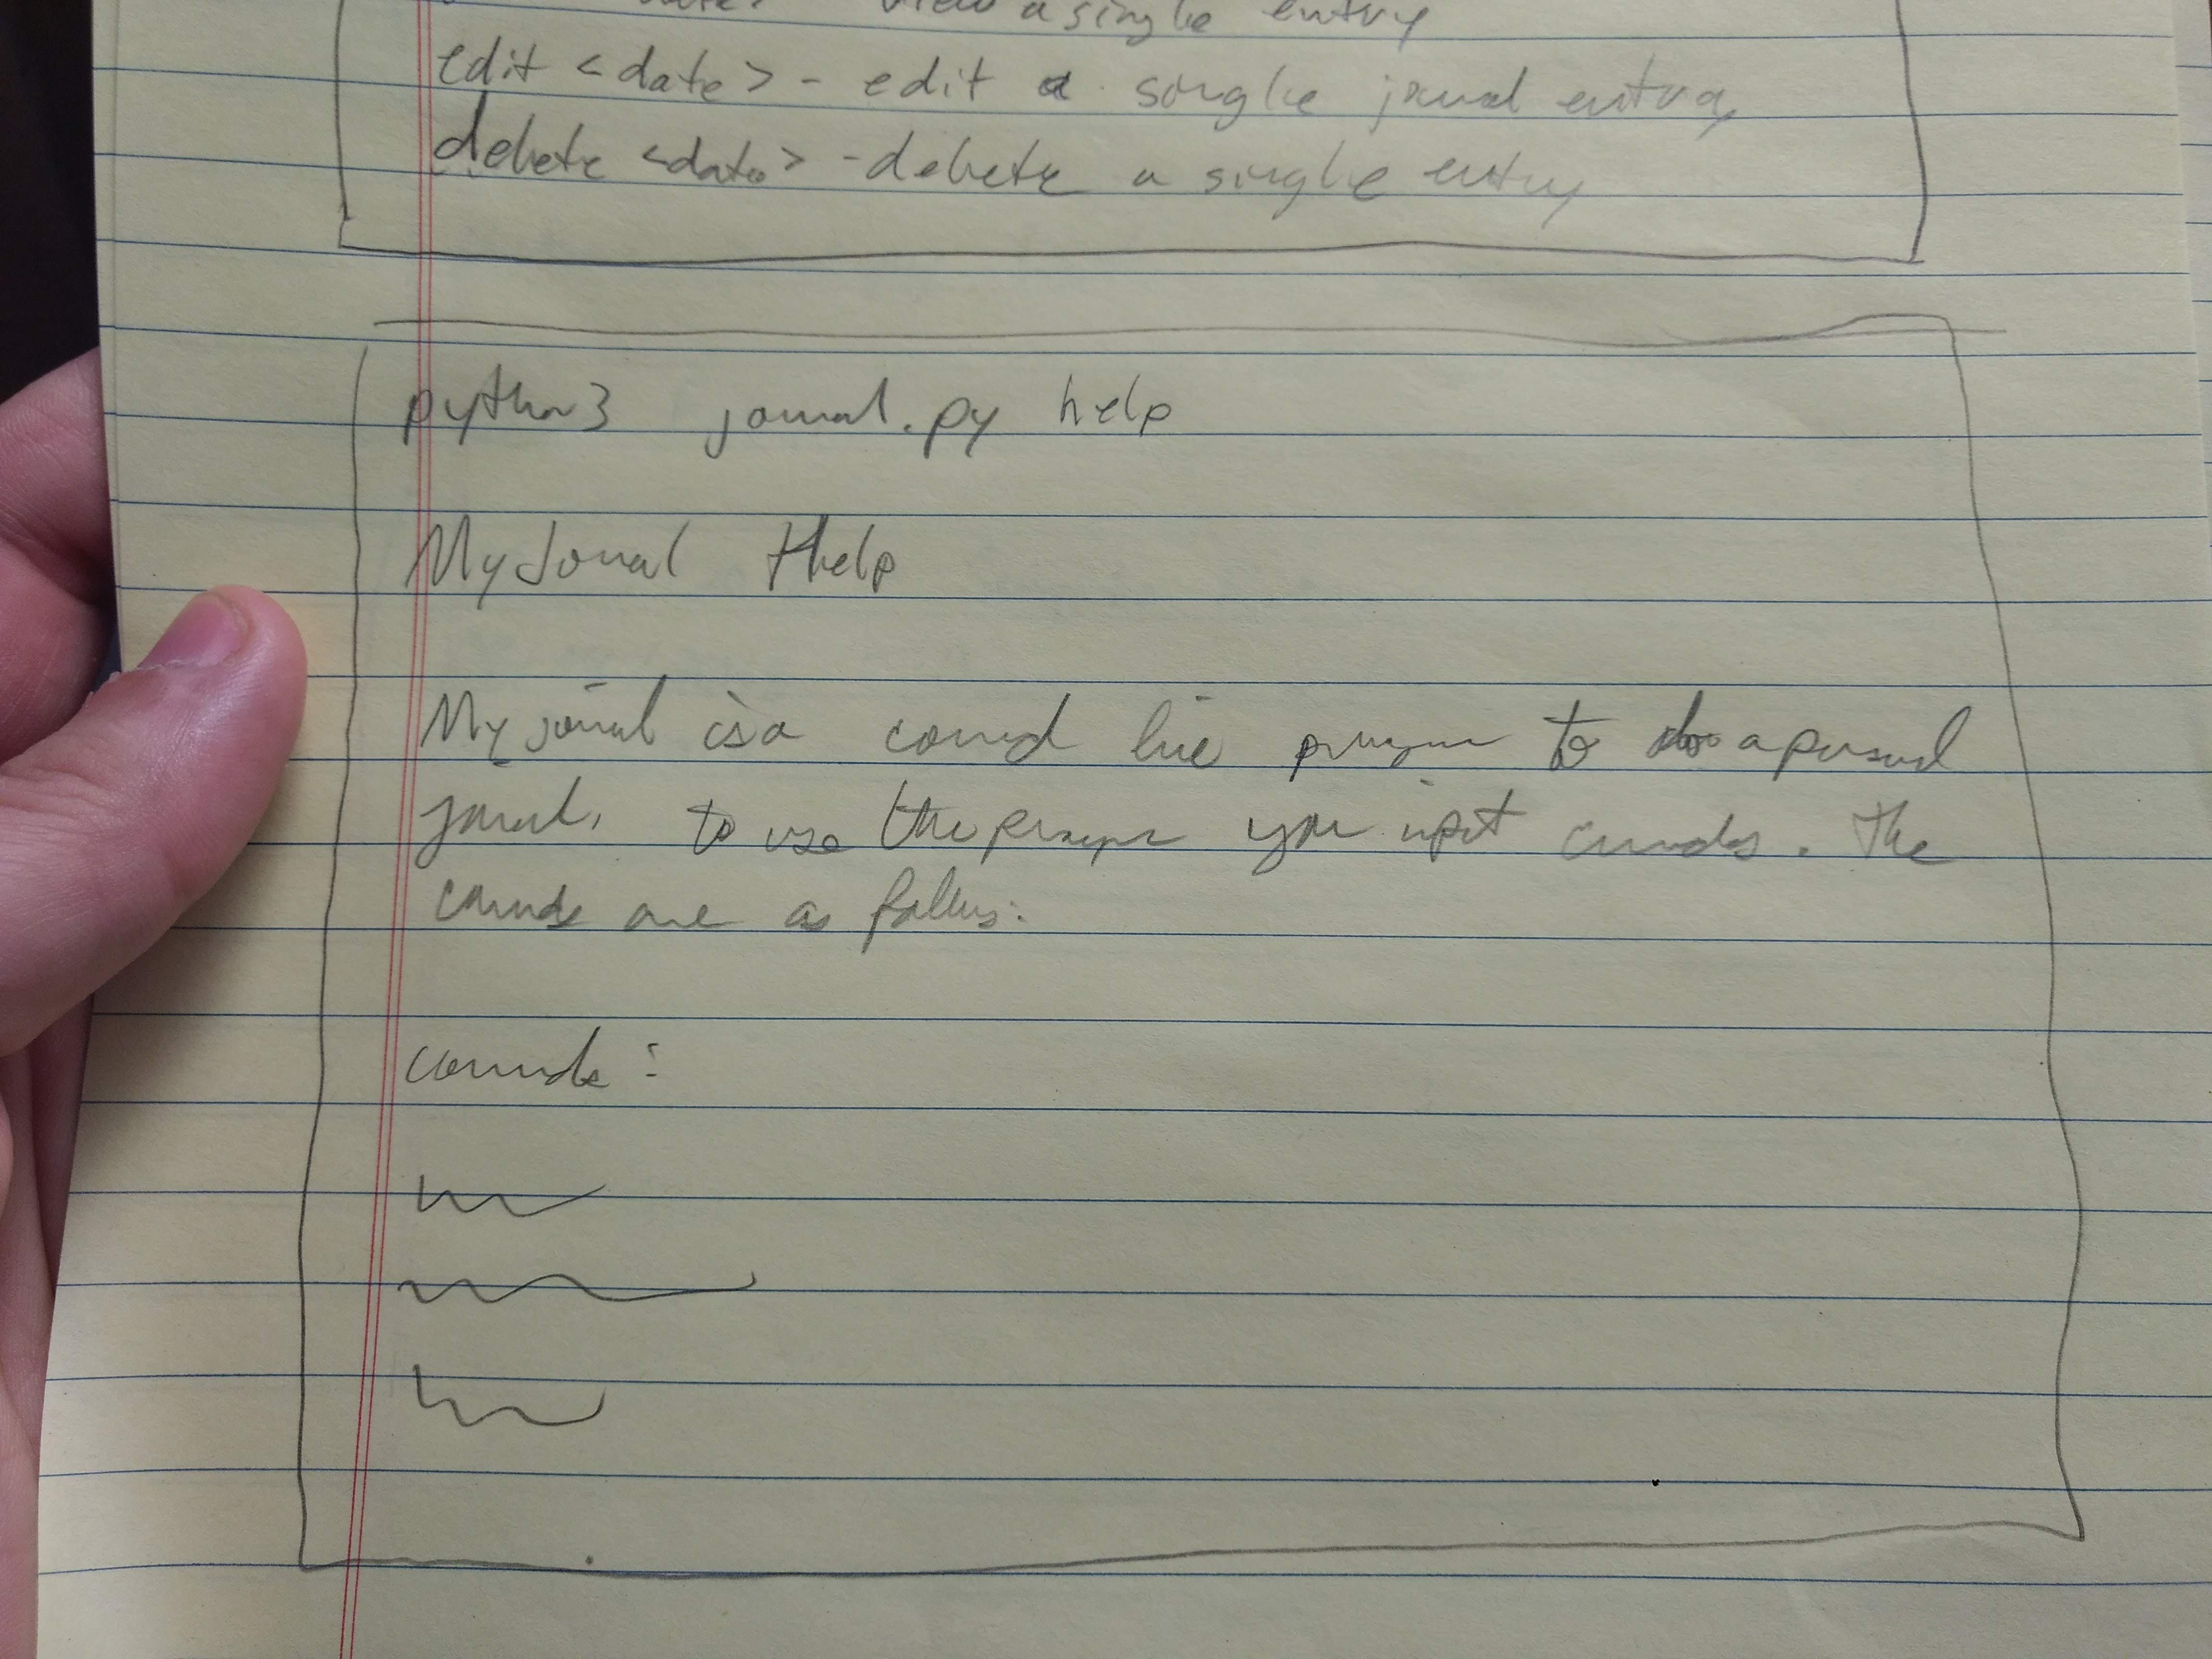 <date> view a single entry
edit <date> - edit a single journal entry
delete <date> - delete a single entry
python3 journal.py help
MyJournal Help
My journal is a command line program to do a personal
journal. to use the program you input commands. The
commands are as follows:
commands: